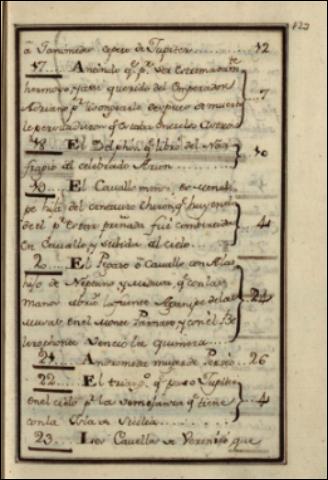 123
a Ganimedes copero de Jupiter.....12
17.... Antinóo q.e p.r ser extremadam.te
hermoso, y ser querido del Emperador
Adriano p.a lisongearle despues de muerto 7
le persuadieron q.e estaba en los Astros
18.... El Delphin q.e libró del Nau
fragio al celebrado Arion....... 10
19.... El Cavallo menor,
pe hija del centauro Chiron, q.e huyendo
de el p.r estar preñada fué combertida 4
en Cavallo, y subida al cielo....
2..... El Pegaso ó Cavallo con Alas
hijo de Neptuno, y Medusa, q.e con las
manos abrió la fuente Aganipe de las
Musas en el Monte Parnaso, y con el Be
lerophonte Venció la quimera....
21.... Andromeda muger de Perseo..26
22.... El triang.o q.e puso Jupiter
en el cielo p.r la semejanza q.e tiene 4
con la Isla de Sicilia........
23.... Los Cavellos de Verenise que